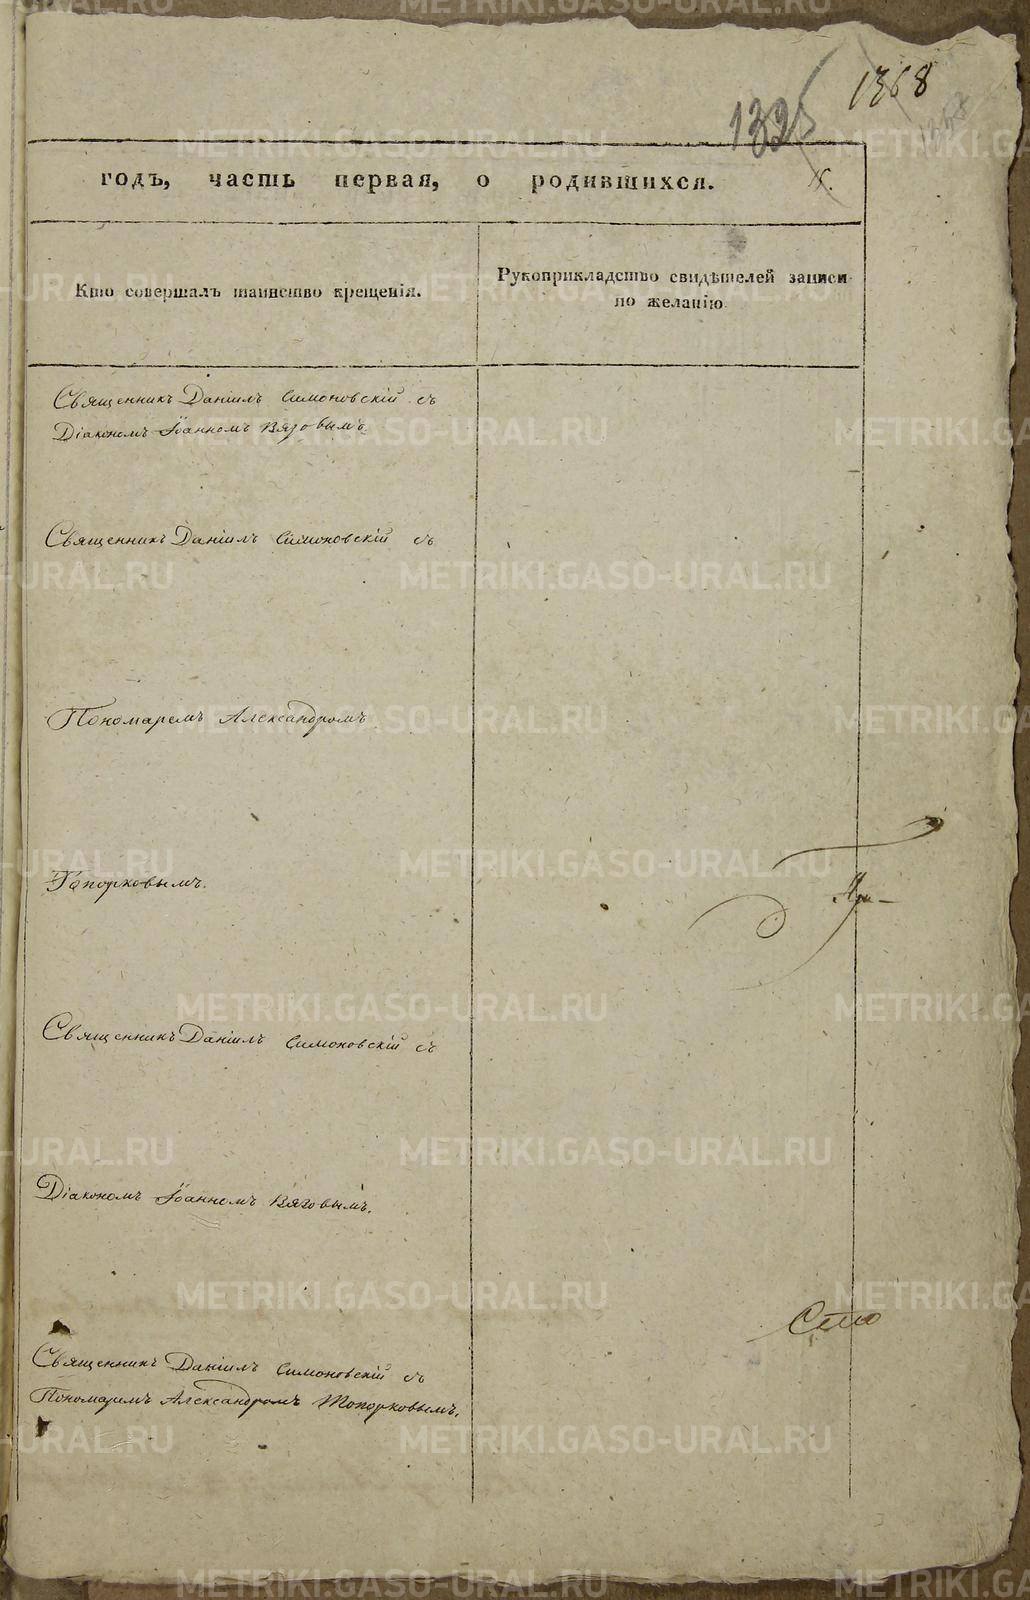 1368
132
годъ, часть первая, о родившихся.
Кто совершалъ таинство крещенія.
Рукоприкладство свидѣтелей записи
по желанію
Священникъ Даніилъ Симоновскій съ
Діакономъ Іоанномъ Вязовымъ.
Священникъ Даніилъ Симоновскій съ
Пономаремъ Александромъ
Топорковымъ.
Священникъ Даніилъ Симоновскій съ
Діакономъ Іоанномъ Вязовымъ.
Сто
Священникъ Даніилъ Симоновскій съ
Пономаремъ Александромъ Топорковымъ.
METRIKI.GASO-URAL.RU